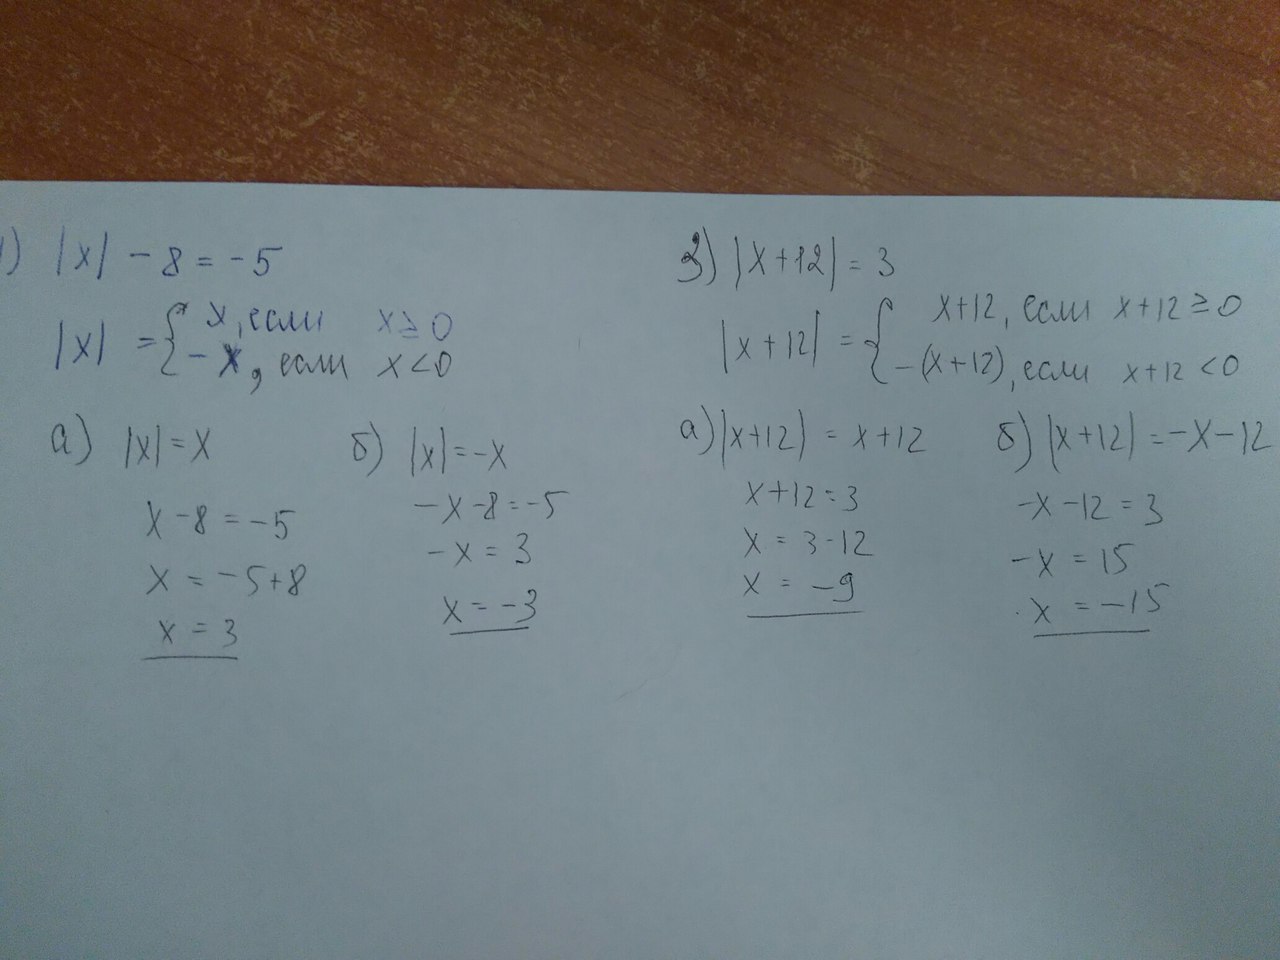 1) |x| - 8 = -5
|x| = { x, если x ≥ 0
- x, если x < 0
а) |x| = x
x - 8 = -5
x = -5 + 8
x = 3
б) |x| = -x
-x - 8 = -5
-x = 3
x = -3
3) |x + 12| = 3
|x + 12| = { x + 12, если x + 12 ≥ 0
-(x + 12), если x + 12 < 0
а) |x + 12| = x + 12
x + 12 = 3
x = 3 - 12
x = -9
б) |x + 12| = -x - 12
-x - 12 = 3
-x = 15
x = -15